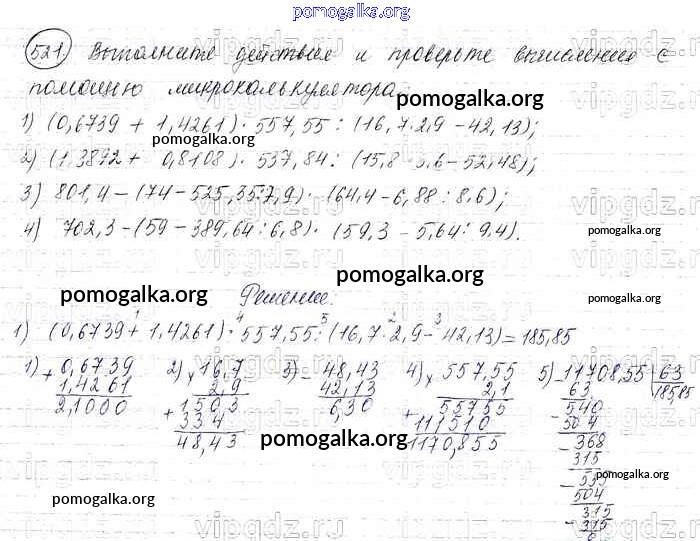 pomogalka.org
521. Выполните действия и проверьте вычисления с
помощью микрокалькулятора:
1) (0,6739 + 1,4261) · 557,55 : (16,7 · 2,9 - 42,13);
2) (1,3892 + 0,8108) · 537,84 : (15,8 · 3,6 - 52,48);
3) 801,4 - (74 - 525,35:7,9) · (64,4 - 6,88 : 8,6);
4) 702,3 - (59 - 389,64 : 6,8) · (59,3 - 5,64 : 9,4).
Решение:
1) (0,6739 + 1,4261) · 557,55 : (16,7 · 2,9 - 42,13) = 185,85
1) + 0,6739 2) × 16,7 3) - 48,43 4) × 557,55 5) - 11708,55 | 63
1,4261 2,9 42,13 2,1 63 185,85
2,1000 + 1503 6,30 + 55755 - 540
334 111510 504
48,43 1170,855 - 368
315
- 535
504
- 315
- 315
0
pomogalka.org
pomogalka.org
pomogalka.org
pomogalka.org
pomogalka.org
pomogalka.org
pomogalka.org
pomogalka.org
pomogalka.org
vipgdz.ru